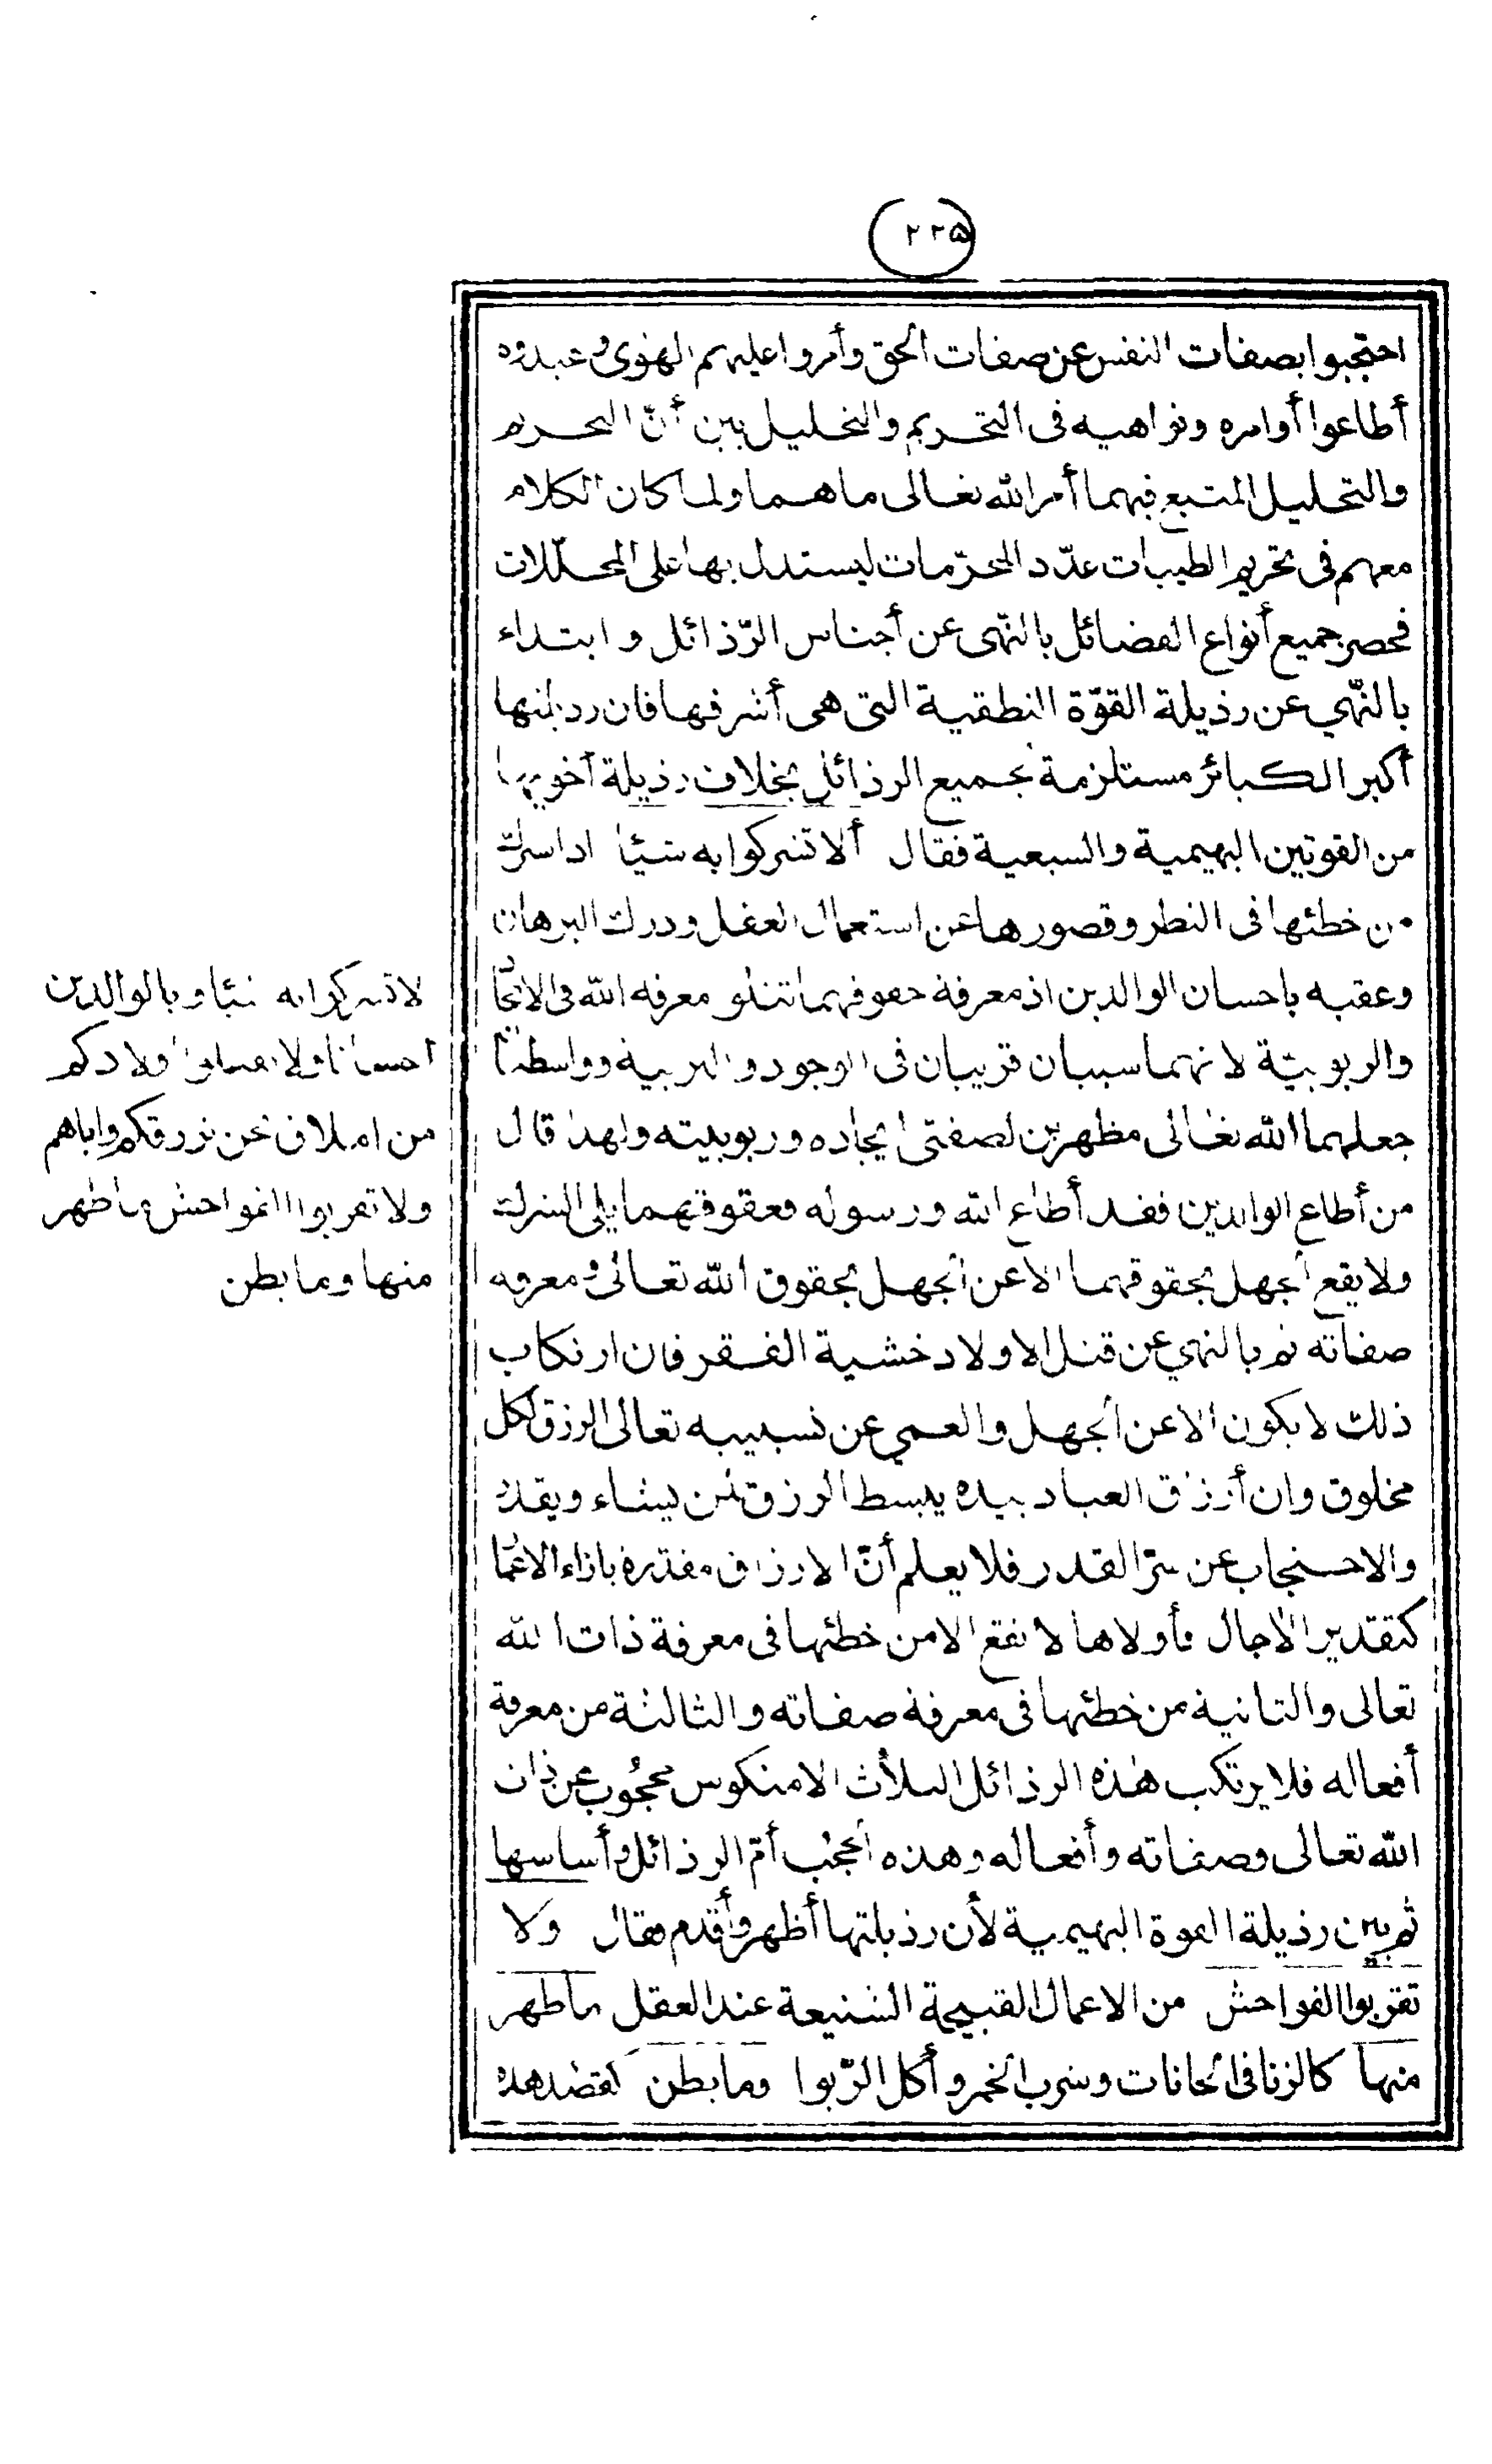 ٢٢٥
احتجبوا بصفات النفس عن صفات الحق وأمروا عليهم الهوى وعبدوه
أطاعوا أوامره ونواهيه فى التحريم والتحليل بين أنّ التحريم
والتحليل المتبع فيهما أمر الله تعالى ما هما ولما كان الكلام
معهم فى تحريم الطيبات عدّد المحرّمات ليستدل بها على المحلّلات
فحصر جميع أنواع الفضائل بالنّهى عن أجناس الرّذائل وابتداء
بالنّهي عن رذيلة القوّة النطقية التى هى أشرفها فان رديلتها
أكبر الكبائر مستلزمة لجميع الرذائل بخلاف رذيلة أخويها
من القوتين البهيمية والسبعية فقال ألا تشركوا به شيئا اذ الشرك
من خطئها فى النظر وقصورها عن استعمال العقل ودرك البرهان
وعقبه باحسان الوالدين اذ معرفة حقوقهما تتلو معرفة الله فى الايجا
والربوبيّة لانهما سببان قريبان فى الوجود والتربية وواسطتا
جعلهما الله تعالى مظهرين لصفتى ايجاده وربوبيته ولهذا قال
من أطاع الوالدين فقد أطاع الله ورسوله فعقوقهما يلى الشرك
ولا يقع الجهل بحقوقهما الا عن الجهل بحقوق الله تعالى ومعرفه
صفاته ثم بالنهي عن قتل الاولاد خشية الفقر فان ارتكاب
ذلك لا يكون الا عن الجهل والعمي عن تسبيبه تعالى الرزق لكل
مخلوق وان أرزاق العباد بيده يبسط الرزق لمن يشاء ويقدر
والاحتجاب عن سرّ القدر فلا يعلم أنّ الارزاق مقدّرة بازاء الاعما
كتقدير الآجال فأولاها لا تقع الا من خطئها فى معرفة ذات الله
تعالى والثانية من خطئها فى معرفة صفاته والثالثة من معرفة
أفعاله فلا يرتكب هذه الرذائل الثلاث الا منكوس محجوب عن ذات
الله تعالى وصفاته وأفعاله وهذه الحجب أمّ الرذائل وأساسها
ثم بين رذيلة القوة البهيمية لأن رذيلتها أظهر وأقدم فقال ولا
تقربوا الفواحش من الاعمال القبيحة الشنيعة عند العقل ما ظهر
منها كالزنا فى الحانات وشرب الخمر وأكل الرّبوا وما بطن كقصد هذه
لا تشركوا به شيئا وبالوالدين
احسانا ولا تقتلوا أولادكم
من املاق نحن نرزقكم واياهم
ولا تقربوا الفواحش ما ظهر
منها وما بطن